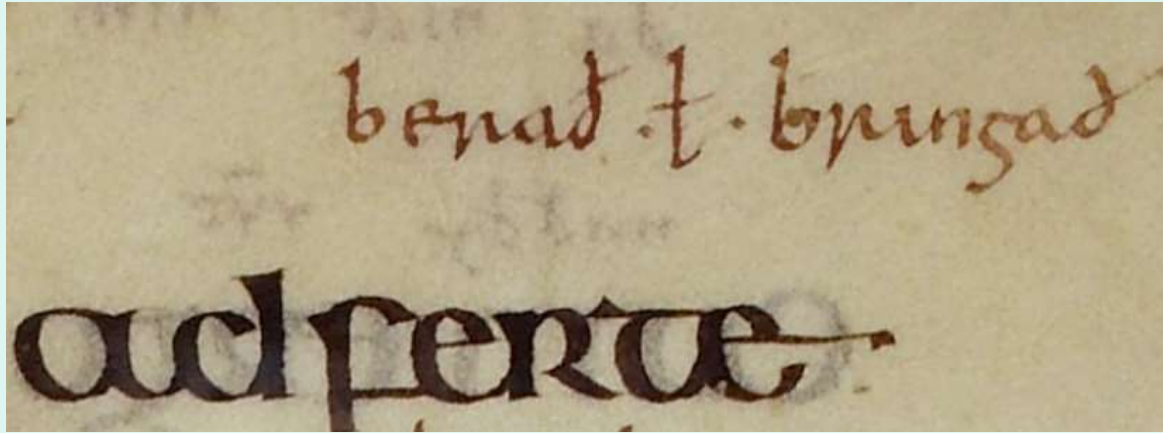 berað · ł · bringað
adferte